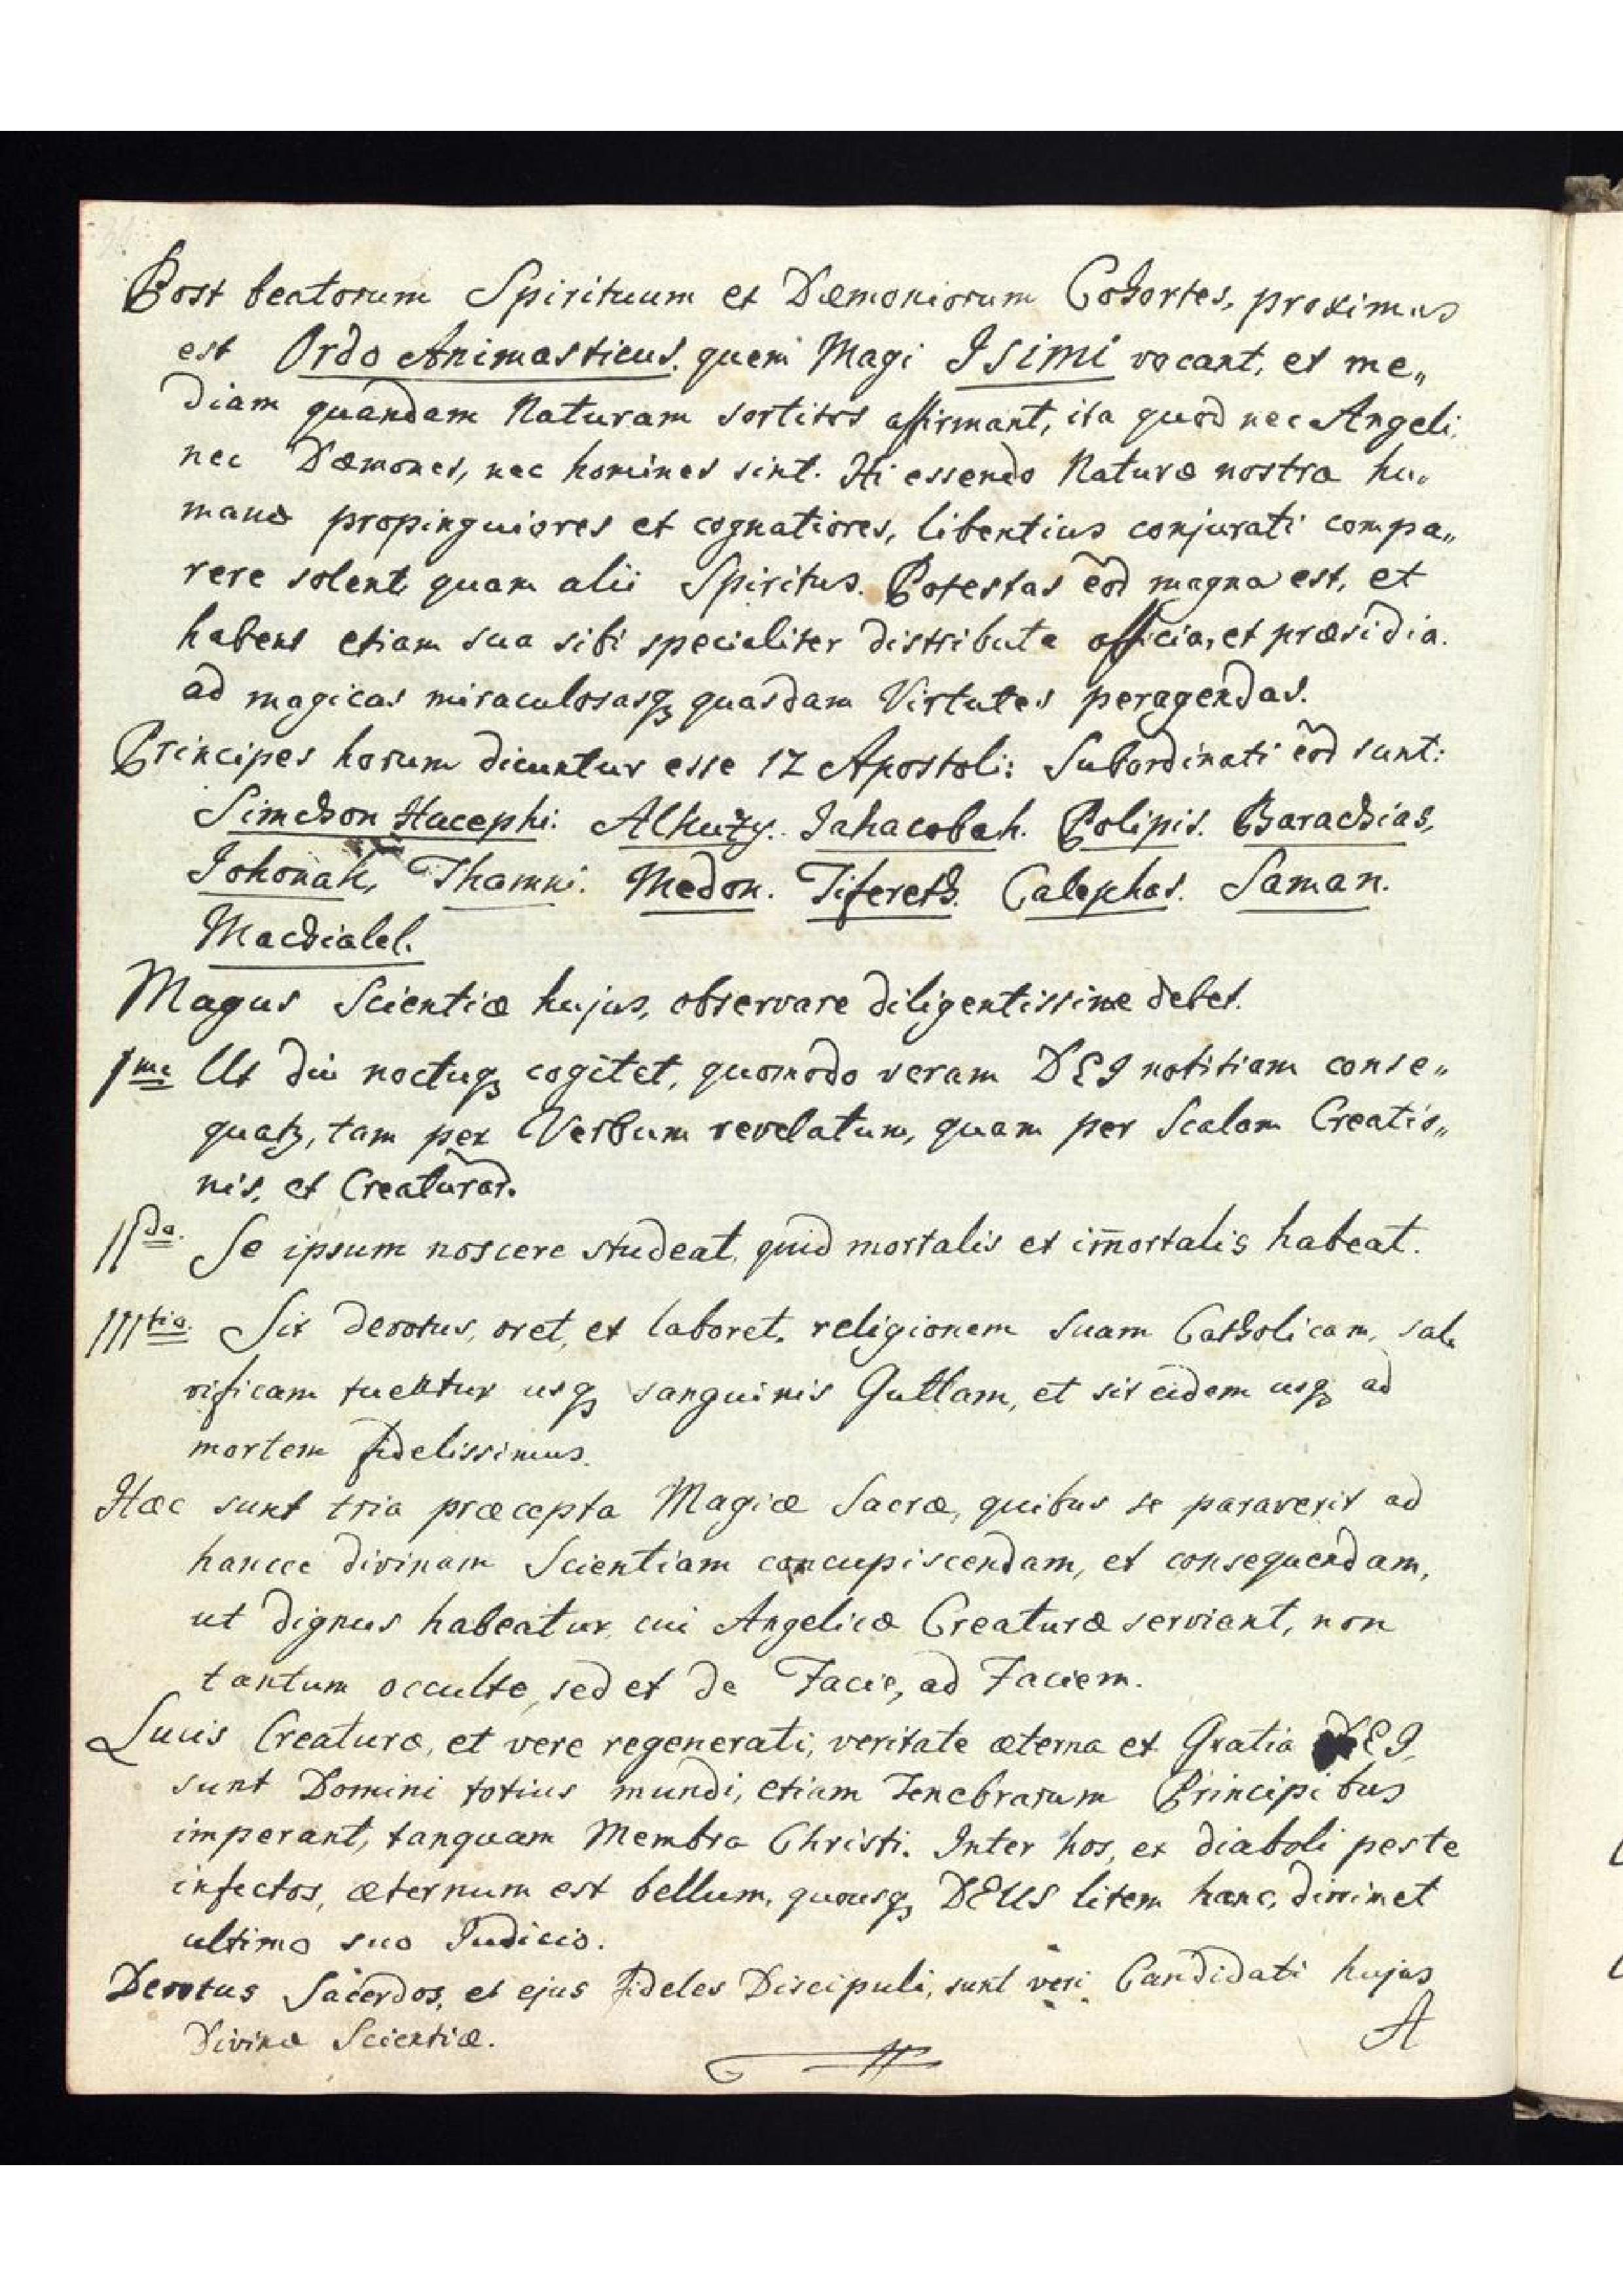 Post beatorum Spirituum et Dæmoniorum Cohortes, proximus
est Ordo Animasticus, quem Magi ISIMI vocant, et me„
diam quandam Naturam sortitos affirmant, ita quod nec Angeli,
nec Dæmones, nec homines sint. Hi essendo Naturæ nostræ hu„
manæ propinquiores et cognatiores, libentius conjurati compa„
rere solent quam alii Spiritus. Potestas eõd magna est, et
habent etiam sua sibi specialiter distributa officia, et præsidia.
ad magicas miraculosasq quasdam Virtutes peragendas.
Principes horum dicuntur esse 12 Apostoli: Subordinati eõd sunt:
Simchon Hacephi. Alkuzy. Jahacobah. Polipis. Barachias,
Johonah, Thamni. Medon. Tifereth. Calephas. Saman.
Machialel.
Magus Scientiæ hujus, observare diligentissime debet.
1mo Ut diu noctuq cogitet, quomodo veram DEI notitiam conse„
quatz, tam per Verbum revelatum, quam per Scalam Creatio„
nis, et Creaturãd.
IIda. Se ipsum noscere studeat, quid mortalis et im̄ortalis habeat.
IIItia. Sit devotus, oret, et laboret. religionem suam Catholicam, sal„
vificam tueatur usq sanguinis Guttam, et sit eidem usq ad
mortem fidelissimus.
Hæc sunt tria præcepta Magiæ Sacræ, quibus se paraverit ad
hancce divinam Scientiam concupiscendam, et consequendam,
ut dignus habeatur cui Angelicæ Creaturæ serviant, non
tantum occulte, sed et de Facie, ad Faciem.
Lucis Creaturæ, et vere regenerati, veritate æterna et Gratia DEI,
sunt Domini totius mundi, etiam Tenebrarum Principibus
imperant, tanquam Membra Christi. Inter hos, et diaboli peste
infectos, æternum est bellum, quousq DEUS litem hanc, dirimet
ultimo suo Judicio.
Devotus Sacerdos, et ejus fideles Discipuli, sunt veri Candidati hujus
Divinæ Scientiæ.
A